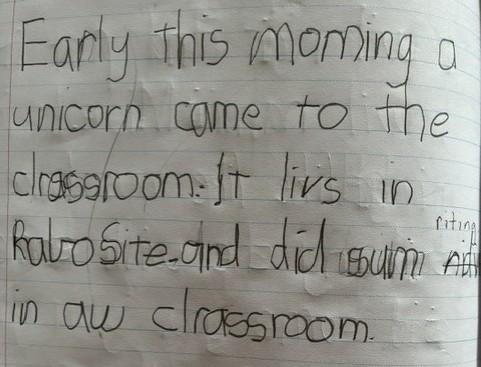 Early this morning a
unicorn came to the
clrassroom. It livs in
RaboSite. and did sum riting
in aw clrassroom.